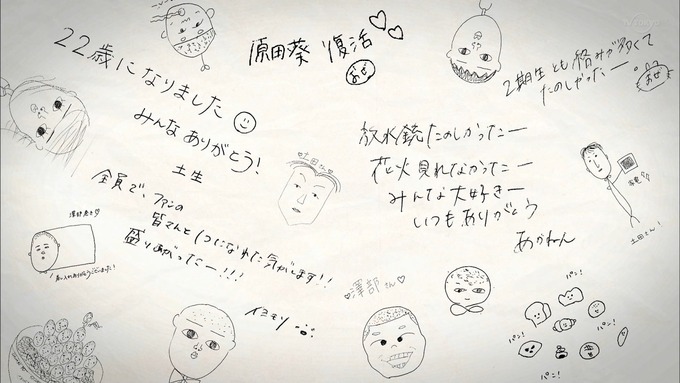 22歳になりました
みんなありがとう!
土生
原田葵 復活
あお
2期生とも絡みが多くて
たのしかったー。
全員で、ファンの
皆さんと1つになれた気がします!!
盛りあがったー!!!
土田さん
放水銃たのしかったー
花火見れなかったー
みんな大好きー
いつもありがとう
あかねん
土田さん!
澤部さん
イニミリ
パン!
パン!
パン!
パン!